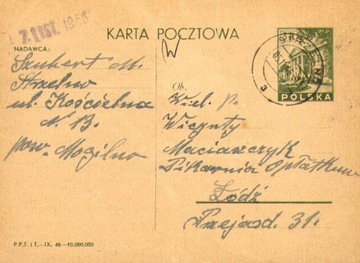 7. LIST. 1946
KARTA POCZTOWA
NADAWCA:
Szubert M.
Strzelno
ul. Kościelna
N. 13.
pow. Mogilno
POLSKA
Ob.
Wiel. p.
Wincenty
Maciaszczyk
Piekarnia Opłatków
Łódź
Przejazd. 31.
P.P.T. i T.–IX. 46–10.000.000